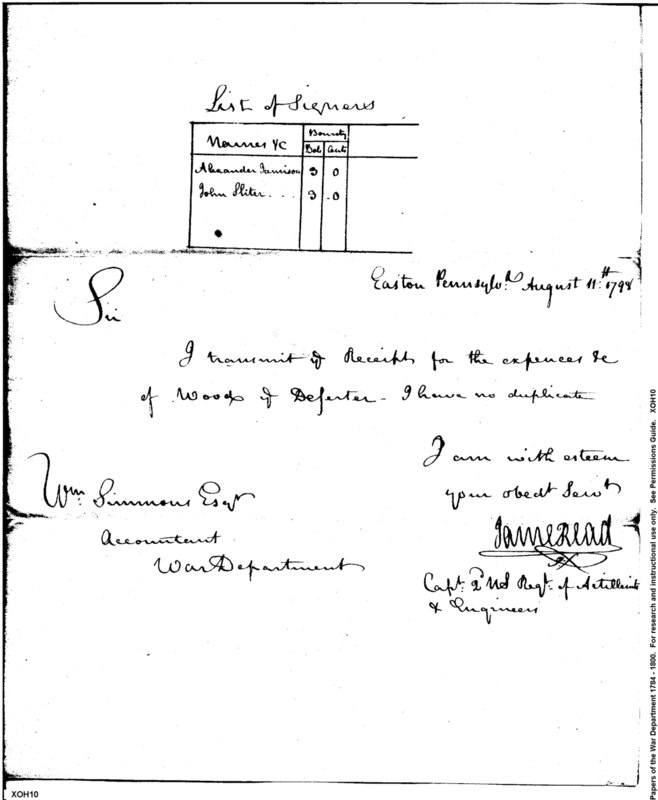 List of Signers
Names &c
Bounty
Dol Cents
Alexander Jamison 3 0
John Sliter . . . 3 0
Easton Pennsylva. August 11th. 1798
Sir
I transmit ye Receipts for the expences &c
of Woods ye Deserter - I have no duplicate
I am with esteem
your obedt Servt
Wm. Simmons Esqr
Accountant
War Department
James Read
Capt. 2nd Regt. of Artillerists
& Engineers
XOH10
Papers of the War Department 1784 - 1800. For research and instructional use only. See Permissions Guide. XOH10